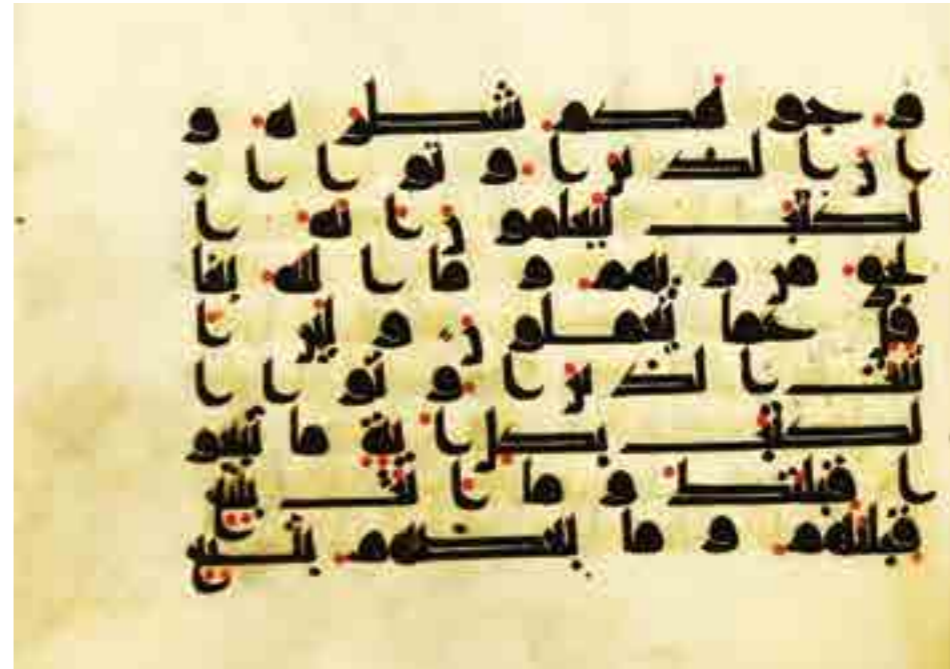 و جو هكم شطر ه و
ا ن ا لذ ين ا و تو ا ا
لكتب ليعلمو ن ا نه ا
لحق من ر بهم و ما ا لله بغا
فل عما يعملو ن و لئن ا
تيت ا لذ ين ا و تو ا ا
لكتب بكل ا ية ما تبعو
ا قبلتك و ما ا نت بتبع
قبلتهم و ما بعضهم بتبع